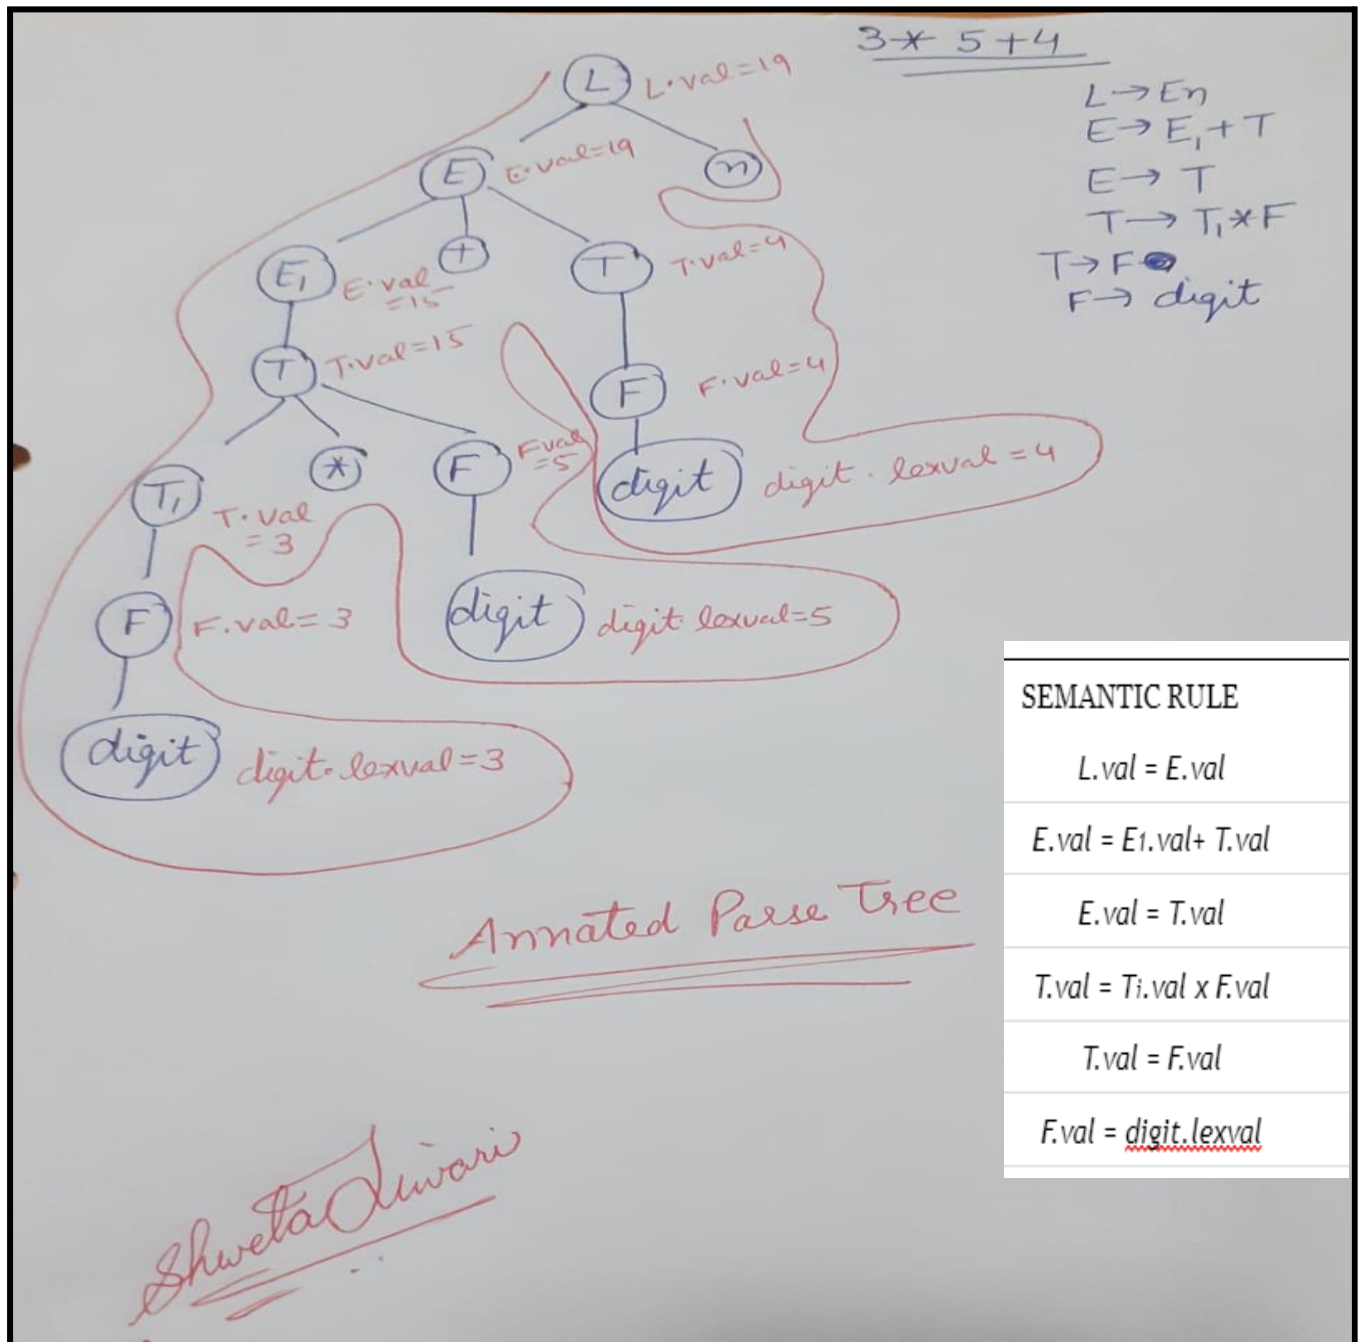 3 * 5 + 4
L → En
E → E₁ + T
E → T
T → T₁ * F
T → F
F → digit
L L.val=19
E E.val=19 n
E₁ E.val =15 + T T.val=4
T T.val=15 F F.val=4
T₁ T.val =3 * F F.val =5 digit digit.lexval=4
F F.val=3 digit digit.lexval=5
digit digit.lexval=3
Annated Parse Tree
Shweta Tiwari
SEMANTIC RULE
L.val = E.val
E.val = E1.val+ T.val
E.val = T.val
T.val = Ti.val x F.val
T.val = F.val
F.val = digit.lexval